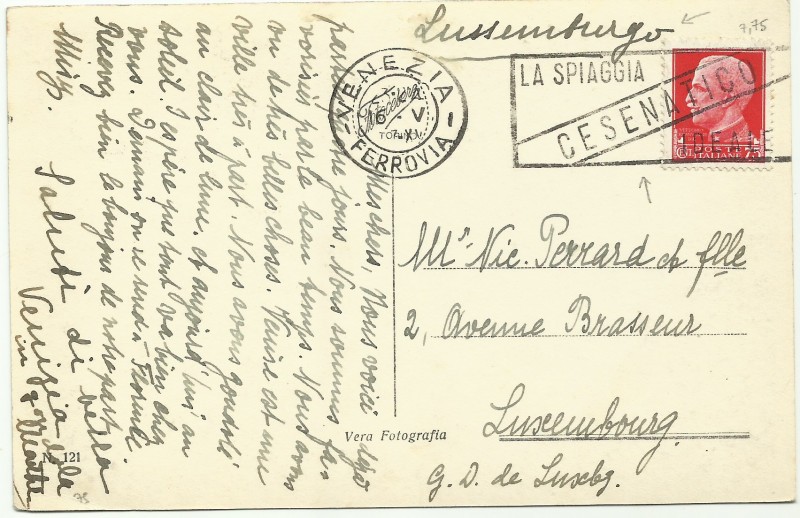 Lussemburgo
7,75
VENEZIA
FERROVIA
6. V
XI
LA SPIAGGIA
CESENATICO
IDEALE
POSTE
ITALIANE
1
75
Mes chers, Nous voici déjà
partis jours. Nous sommes fa-
vorisés par le beau temps. Nous avons
vu de très belles choses. Venise est une
ville très à part. Nous avons gondolé
au clair de lune, et aujourd'hui au
soleil. J'espère que tout va bien chez
vous. Demain on se rend à
Recevez bien le bonjour de notre part
Saluti di bella
Venezia
Mr. Nic. Perrard et flle
2, Avenue Brasseur
Luxembourg
G. D. de Luxbg.
Vera Fotografia
N. 121
75